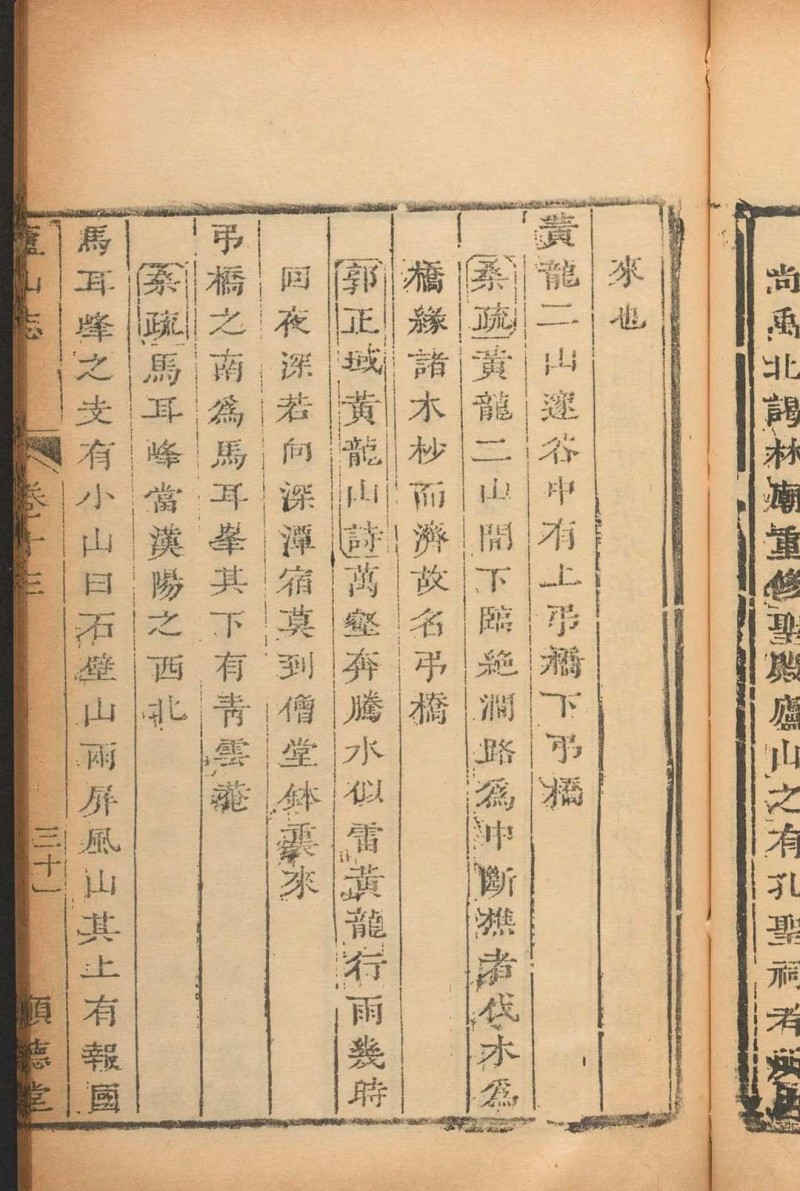 尚禹北謁林廟重修聖殿廬山之有孔聖祠者
來也
黃龍二山邃谷中有上弔橋下弔橋
桑疏黃龍二山開下臨絶澗路爲中斷樵者伐木爲
橋緣諸木杪而濟故名弔橋
郭正域黃龍山詩萬壑奔騰水似雷黃龍行雨幾時
回夜深若向深潭宿莫到僧堂鉢裏來
弔橋之南爲馬耳峯其下有青雲菴
桑疏馬耳峰當漢陽之西北
馬耳峰之支有小山曰石壁山雨屏風山其上有報國
廬山志
卷十三
三十一
順德堂